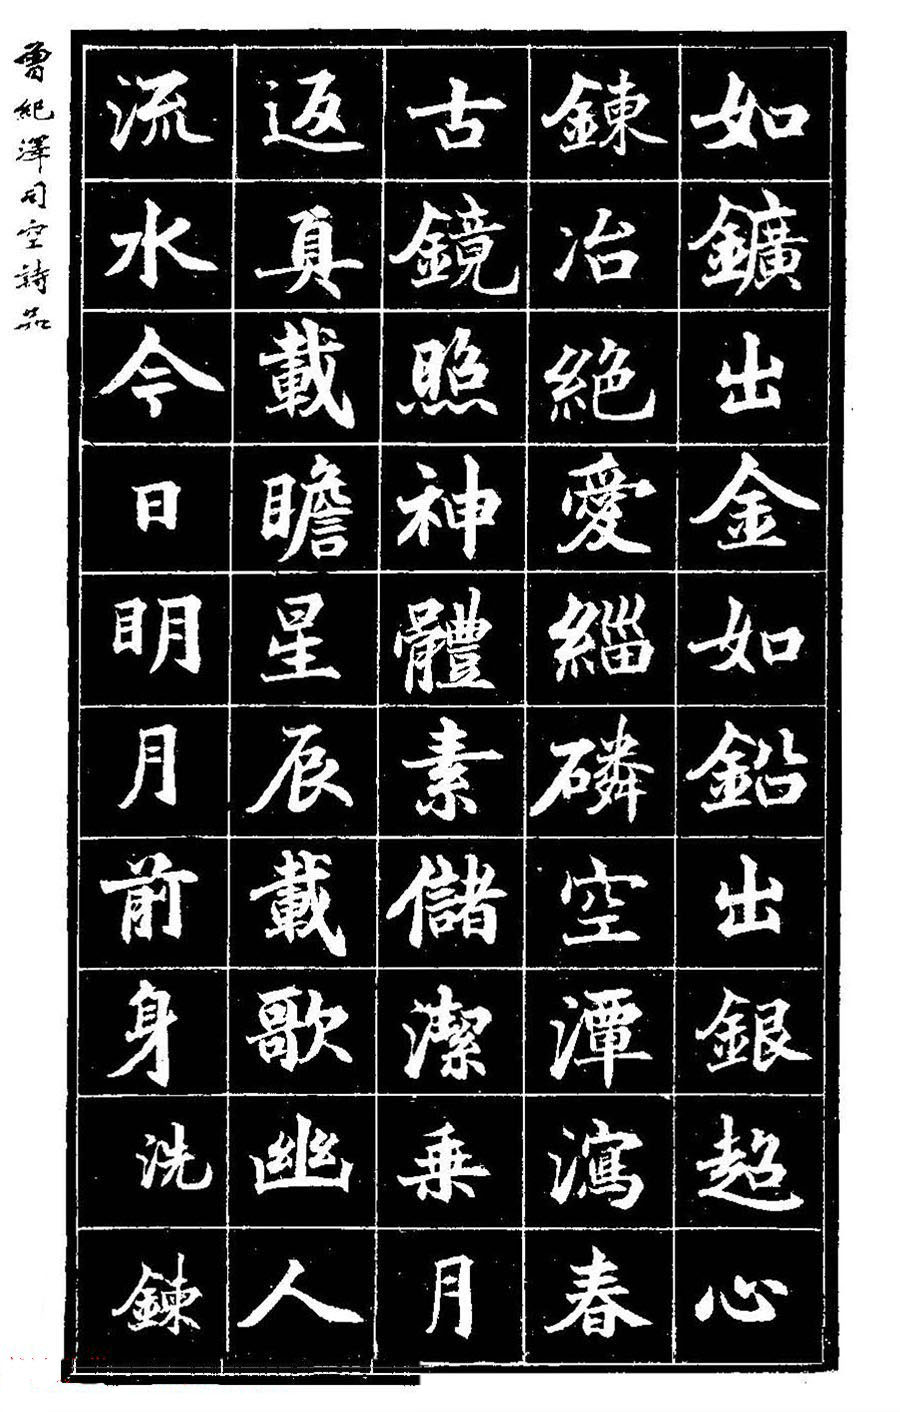 如鑛出金如鉛出銀超心
鍊冶絕愛緇磷空潭瀉春
古鏡照神體素儲潔乗月
返真載瞻星辰載歌幽人
流水今日明月前身洗鍊
曾紀澤司空詩品